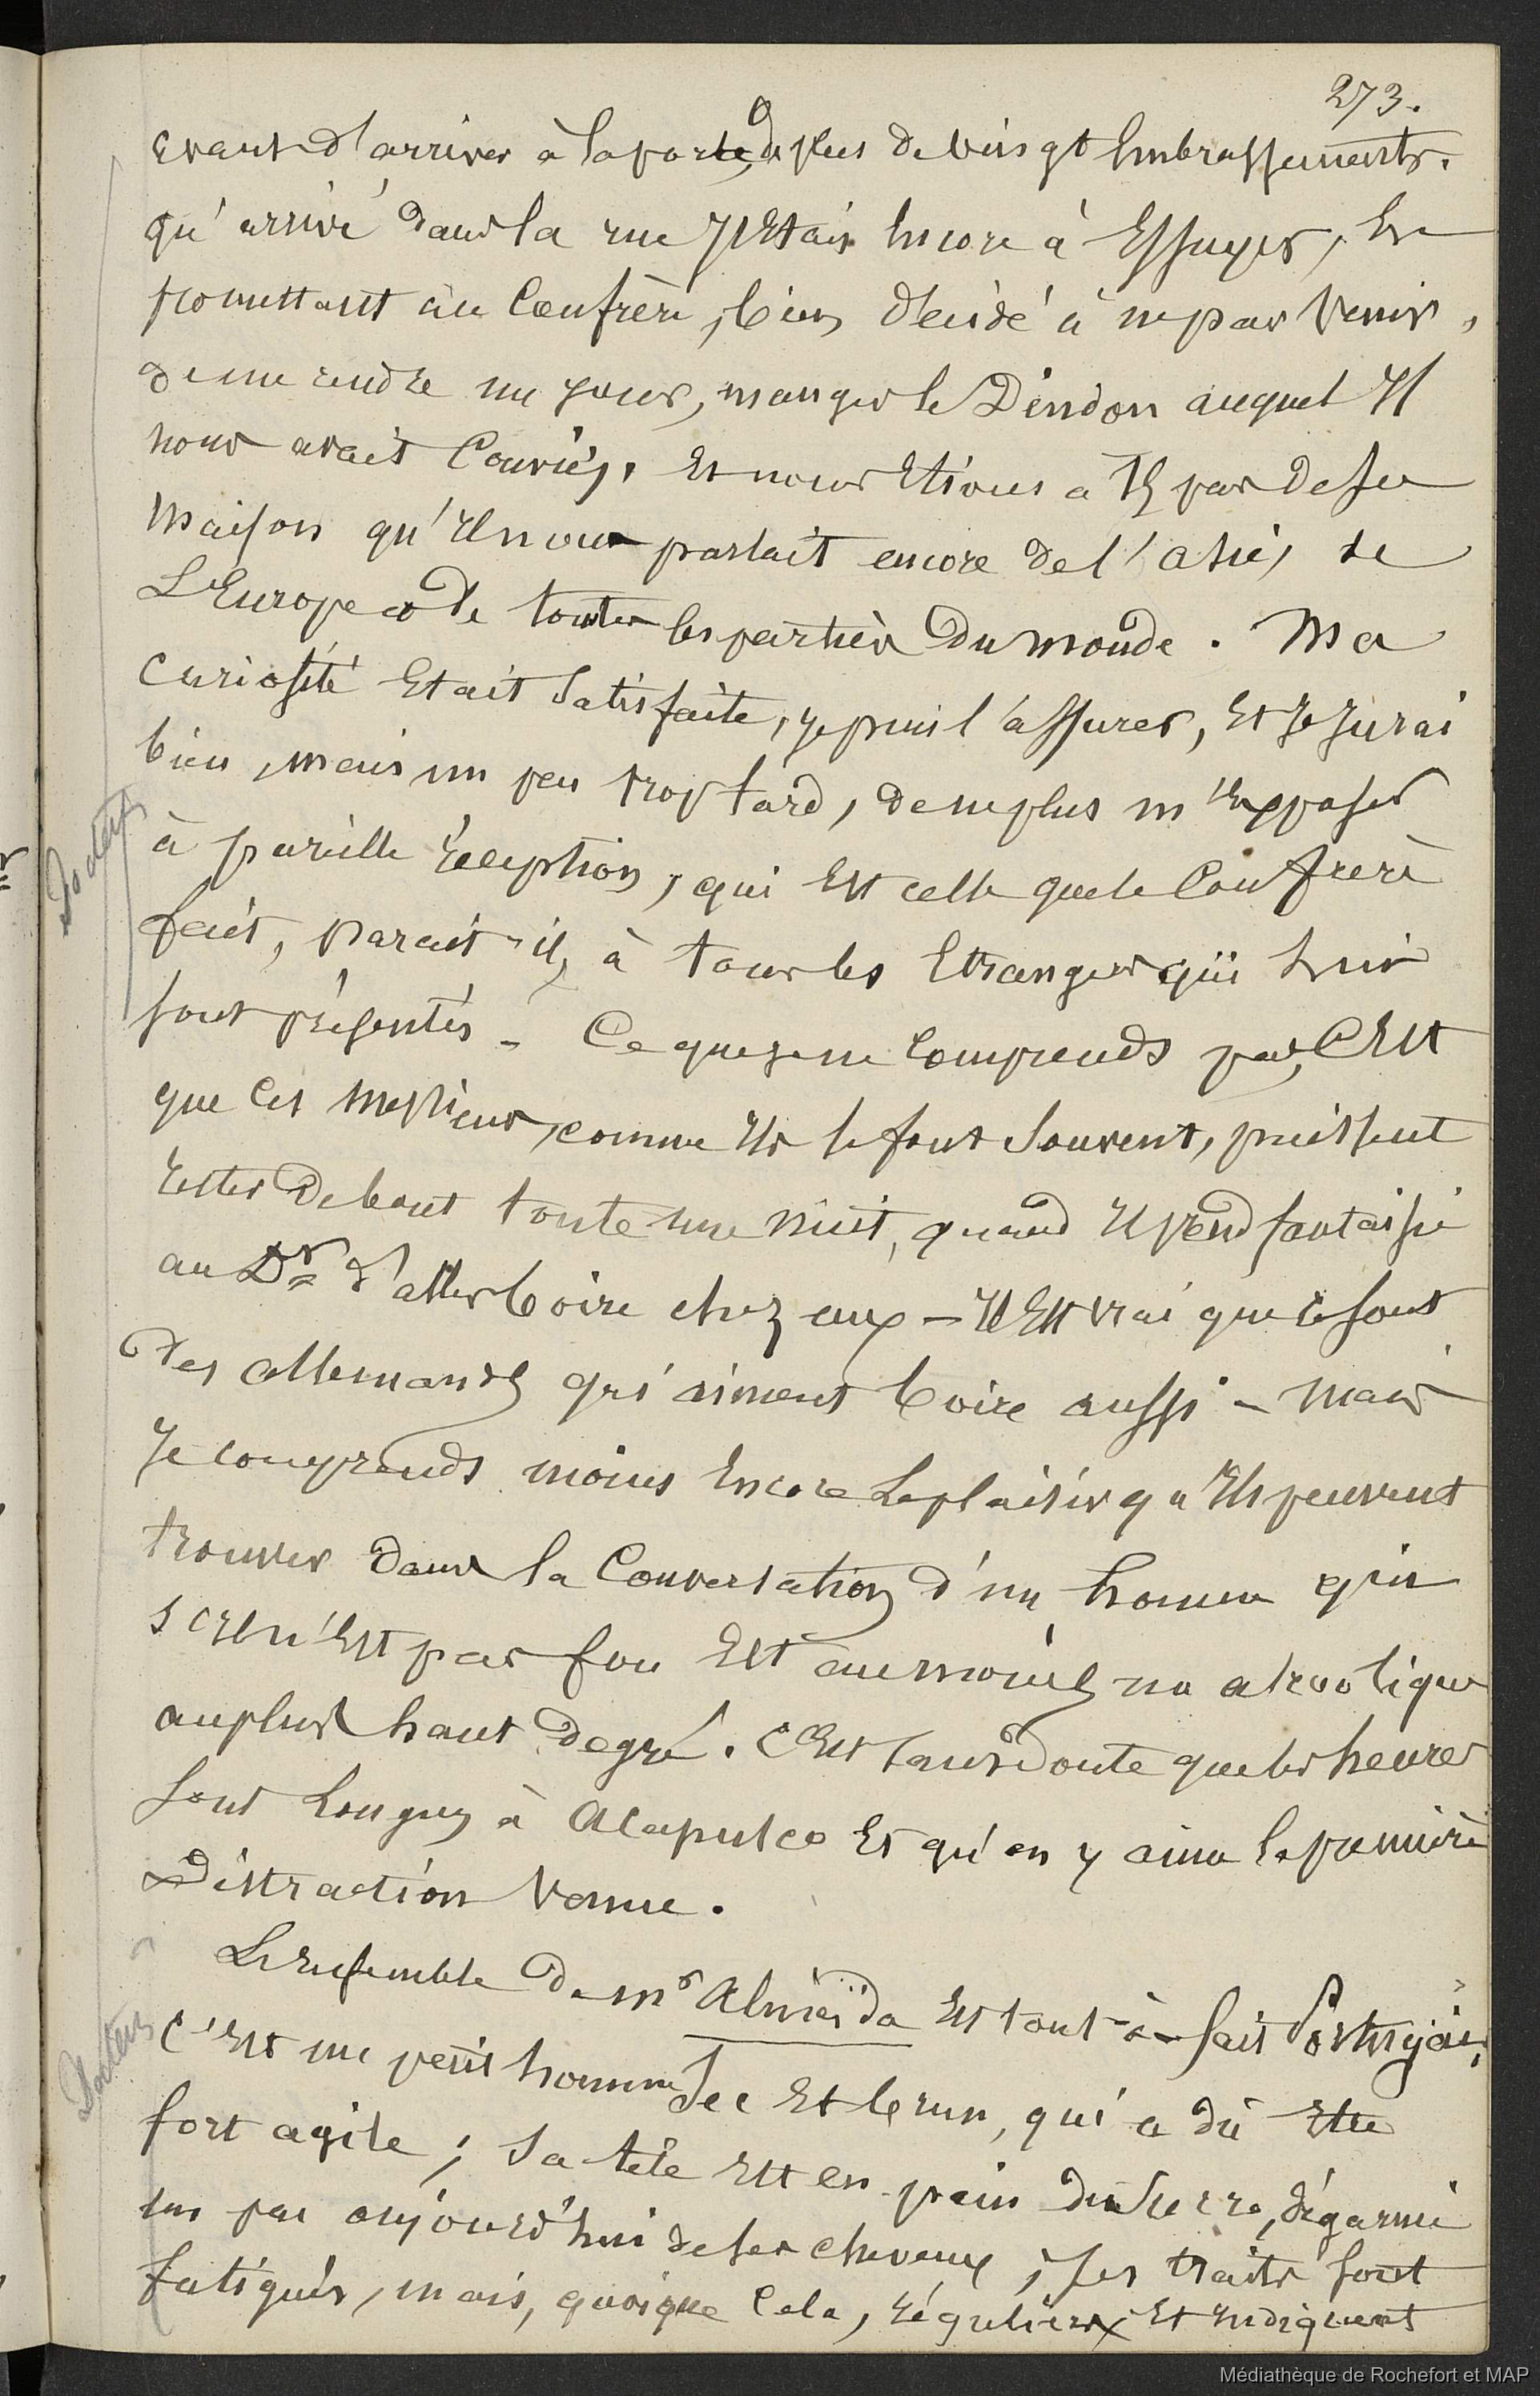 273.
avant d'arriver à la porte, de plus de vingt Embrassements.
qu'arrivé dans la rue J'Etais Encore à Essuyer, En
promettant au Confrère, bien décidé à ne pas Venir,
de me rendre un jour, manger le Dindon auquel Il
nous avait Conviés. Et nous Etions à 15 pas de sa
Maison qu'Il nous parlait encore de l'Asie, de
L'Europe et de toutes les parties du monde. Ma
Curiosité Etait Satisfaite, je puis l'assurer, Et Je Jurai
bien, mais un peu trop tard, de ne plus m'Exposer
à pareille réception, qui Est celle que le Confrère
fait, parait-il, à tous les Etrangers qui lui
sont présentés - Ce que je ne Comprends pas, C'Est
que Ces Messieurs, comme Ils le font Souvent, puissent
rester debout toute une nuit, quand Il prend fantaisie
au Dr d'aller boire chez eux - Il Est vrai que ce sont
des Allemands qui aiment boire aussi - Mais
Je comprends moins Encore Le plaisir qu'Ils peuvent
trouver dans la Conversation d'un homme qui
s'Il n'Est pas fou Est au moins un alcoolique
au plus haut degré. C'Est sans doute que les heures
sont Longues à Acapulco Et qu'on y aime la première
Distraction Venue.
L'Ensemble de Mr Almeïda Est tout-à-fait Portugais,
C'Est un petit homme Sec Et brun, qui a dû Etre
fort agile ; Sa tête Est en pain de Sucre, dégarnie
un peu aujourd'hui de ses cheveux ; ses traits sont
fatigués, mais, quoique Cela, réguliers Et Indiquent
Docteur
Docteur
Médiathèque de Rochefort et MAP